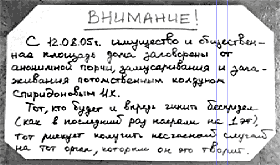 ВНИМАНИЕ!
С 12.08.05г. имущество и обществен-
ная площадь дома заговорены от
анонимной порчи, замусоривания и зага-
живания потомственным колдуном
Спиридоновым И.К.
Тот, кто будет и впредь чинить беспредел
(как в последний раз насрали на 1 эт.),
тот рискует получить несчастный случай
на тот орган, которым он это творит.